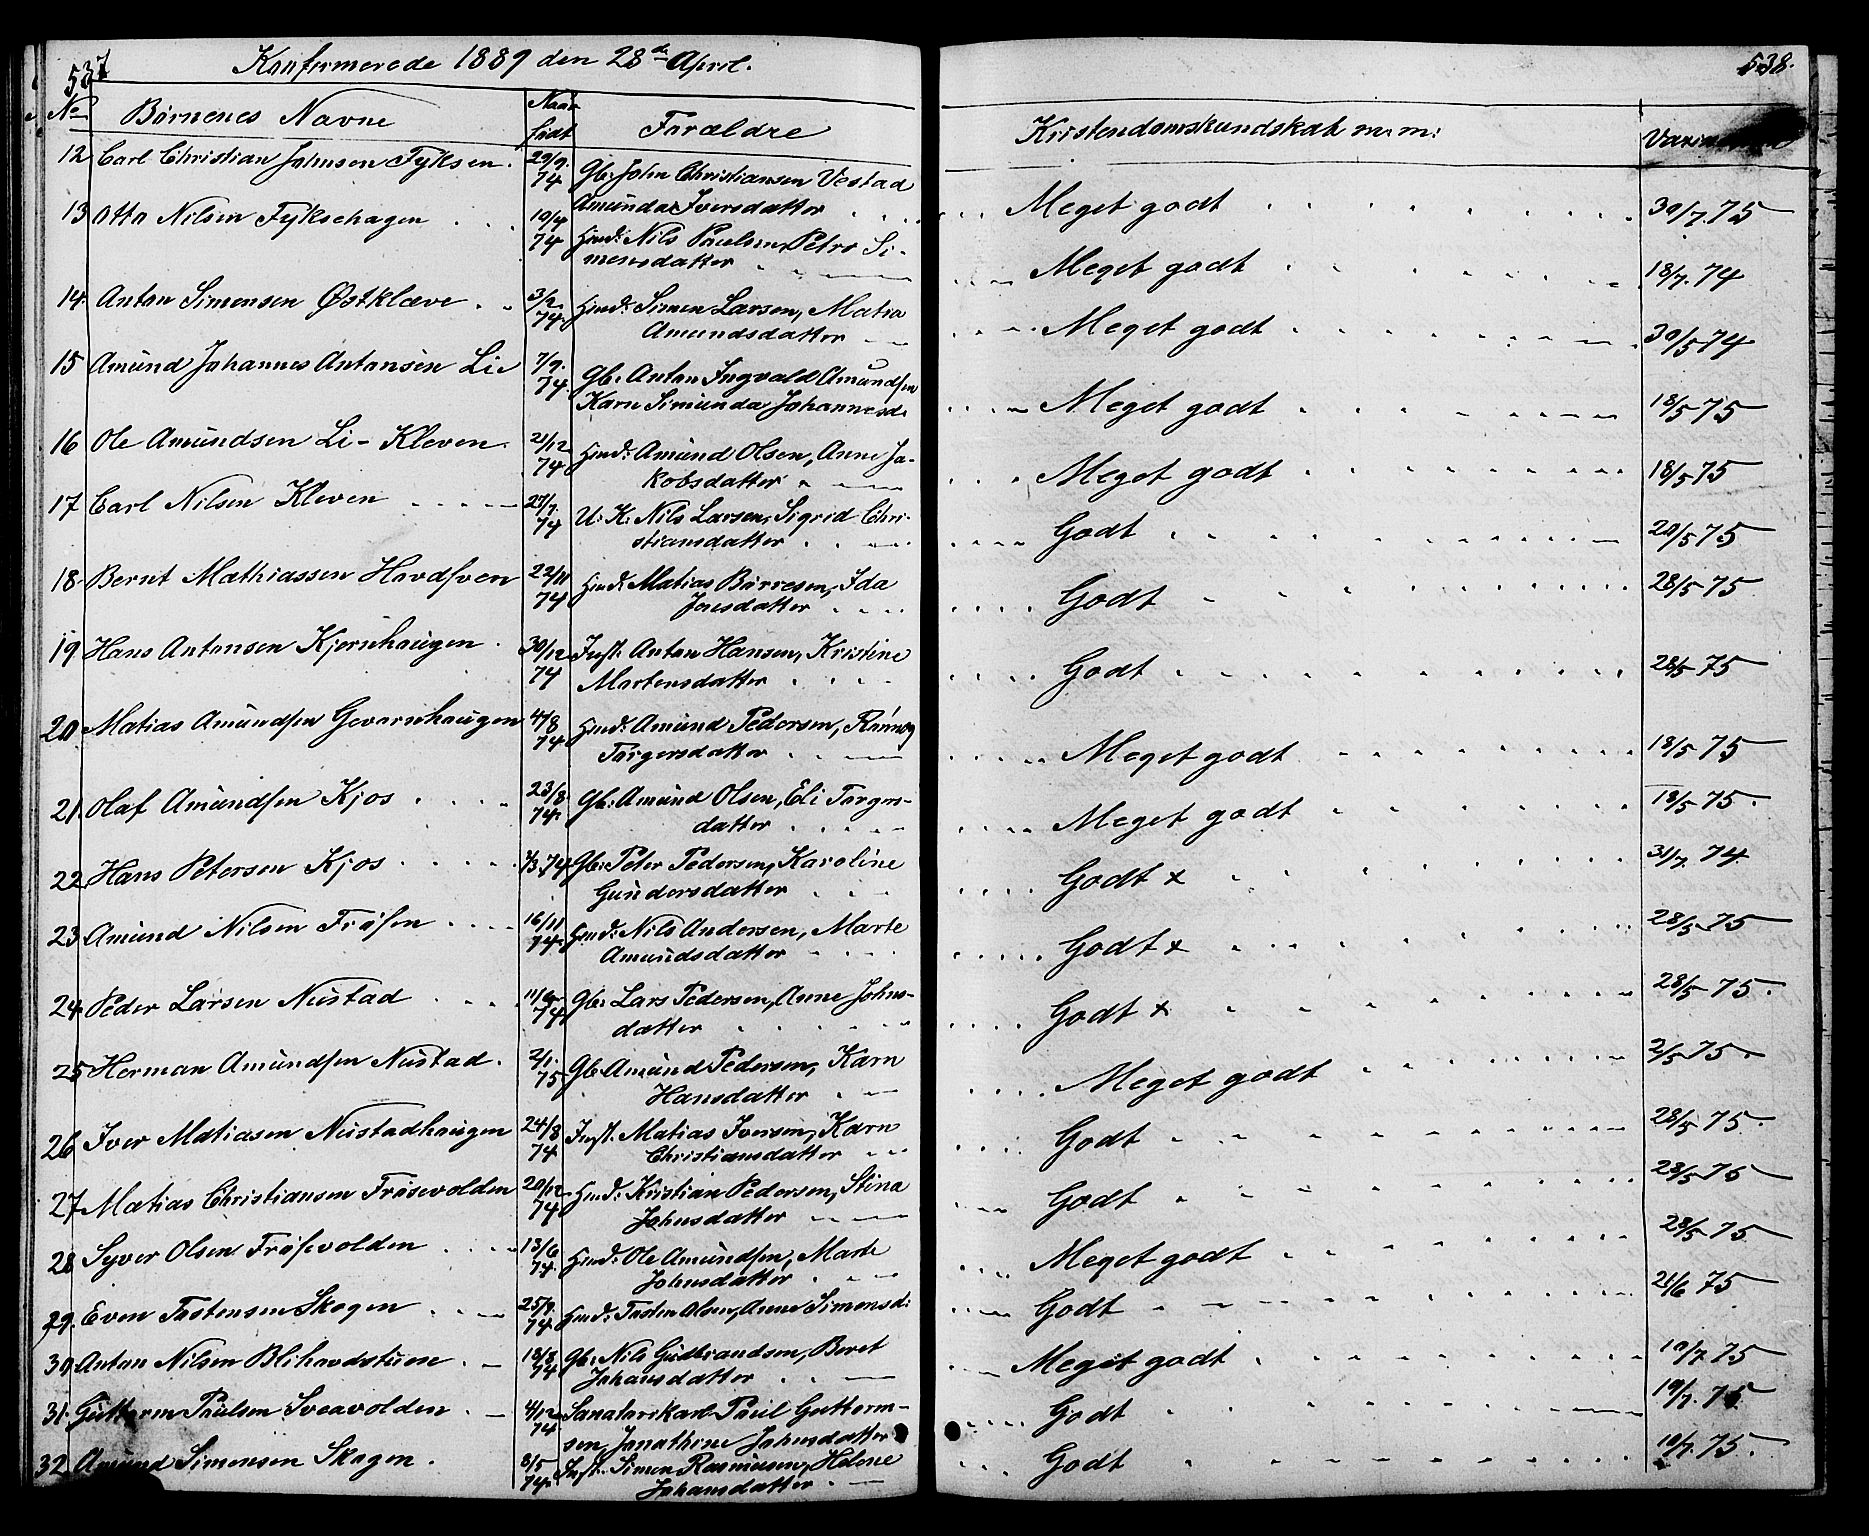 537
Konfirmerede 1889 den 28de April.
No Børnenes Navne Naar født Forældre
12 Carl Christian Johnsen Fyksen. 29/9. 74 Gb: John Christiansen Vestad
Amunda Iversdatter
13 Otto Nilsen Fyksehagen 10/4 74 Hmd: Nils Paulsen, Petro Si-
mensdatter
14 Anton Simensen Østklæve 3/2 74. Hmd: Simen Larsen, Matia
Amundsdatter
15 Amund Johannes Antonsen Lie 7/9. 74. Gb: Anton Ingvald Amundsen
Karn Simunda Johannesd.
16 Ole Amundsen Li-Kleven. 21/12 74 Hmd: Amund Olsen, Anne Ja-
kobsdatter
17 Carl Nilsen Kleven 27/7. 74 U: K: Nils Larsen, Sigrid Chri-
stiansdatter
18. Bernt Mathiassen Havdsven 22/11 74 Hmd: Matias Børresen, Ida
Jonsdatter
19 Hans Antonsen Kjernhaugen. 30/12 74 Inst: Anton Hansen, Kristine
Martensdatter
20. Matias Amundsen Gevarnhaugen 4/8 74 Hmd: Amund Pedersen, Rønnog
Torgersdatter
21. Olaf Amundsen Kjos 23/8 74. Gb: Amund Olsen, Eli Torgers-
datter
22. Hans Petersen Kjos 1/3. 74 Gb: Peter Pedersen, Karoline
Gundersdatter
23 Amund Nilsen Frøsen 16/11 74. Hmd: Nils Andersen, Marte
Amundsdatter
24. Peder Larsen Nustad 74 Gb: Lars Pedersen, Anne Johns-
datter
25 Herman Amundsen Nustad. 2/1. 75 Gb: Amund Pedersen, Karn
Hansdatter
26 Iver Matiasen Nustadhaugen 24/8 74 Inst: Matias Iversen, Karn
Christiansdatter
27 Matias Christiansen Frøsevolden 20/12 74 Hmd: Kristian Pedersen, Stina
Johnsdatter
28 Syver Olsen Frøsevolden 13/6 74. Hmd: Ole Amundsen, Marte
Johnsdatter
29. Even Tostensen Skogen 25/9. 74 Hmd: Tosten Olsen, Anne Simensd:
30 Anton Nilsen Blihovdstuen 18/8 74 Gb: Nils Gudbrandsen, Beret
Johansdatter
31. Guttorm Paulsen Sveavolden 4/12 74 Paul Guttorm-
sen, Jonathine Johnsdatter
32 Amund Simensen Skogen. 8/5 74. Inst. Simen Rasmusen, Helene
Johansdatter
538.
Kristendomskundskab m.m:
Meget godt 30/7. 75
Meget godt 18/7. 74
Meget godt 30/5 74
Meget godt 18/5 75
Meget godt 18/5 75
Godt 20/5 75
Godt 28/5 75
Godt 28/5 75
Meget godt 18/5 75
Meget godt 18/5 75.
Godt x 31/7. 74
Godt x 28/5 75
Godt x 28/5 75.
Meget godt 2/5 75.
Godt 28/5 75.
Godt 28/5 75
Meget godt 28/5 75
Godt 21/6 75
Meget godt 10/7. 75
Godt 19/7. 75
Godt 10/7. 75.